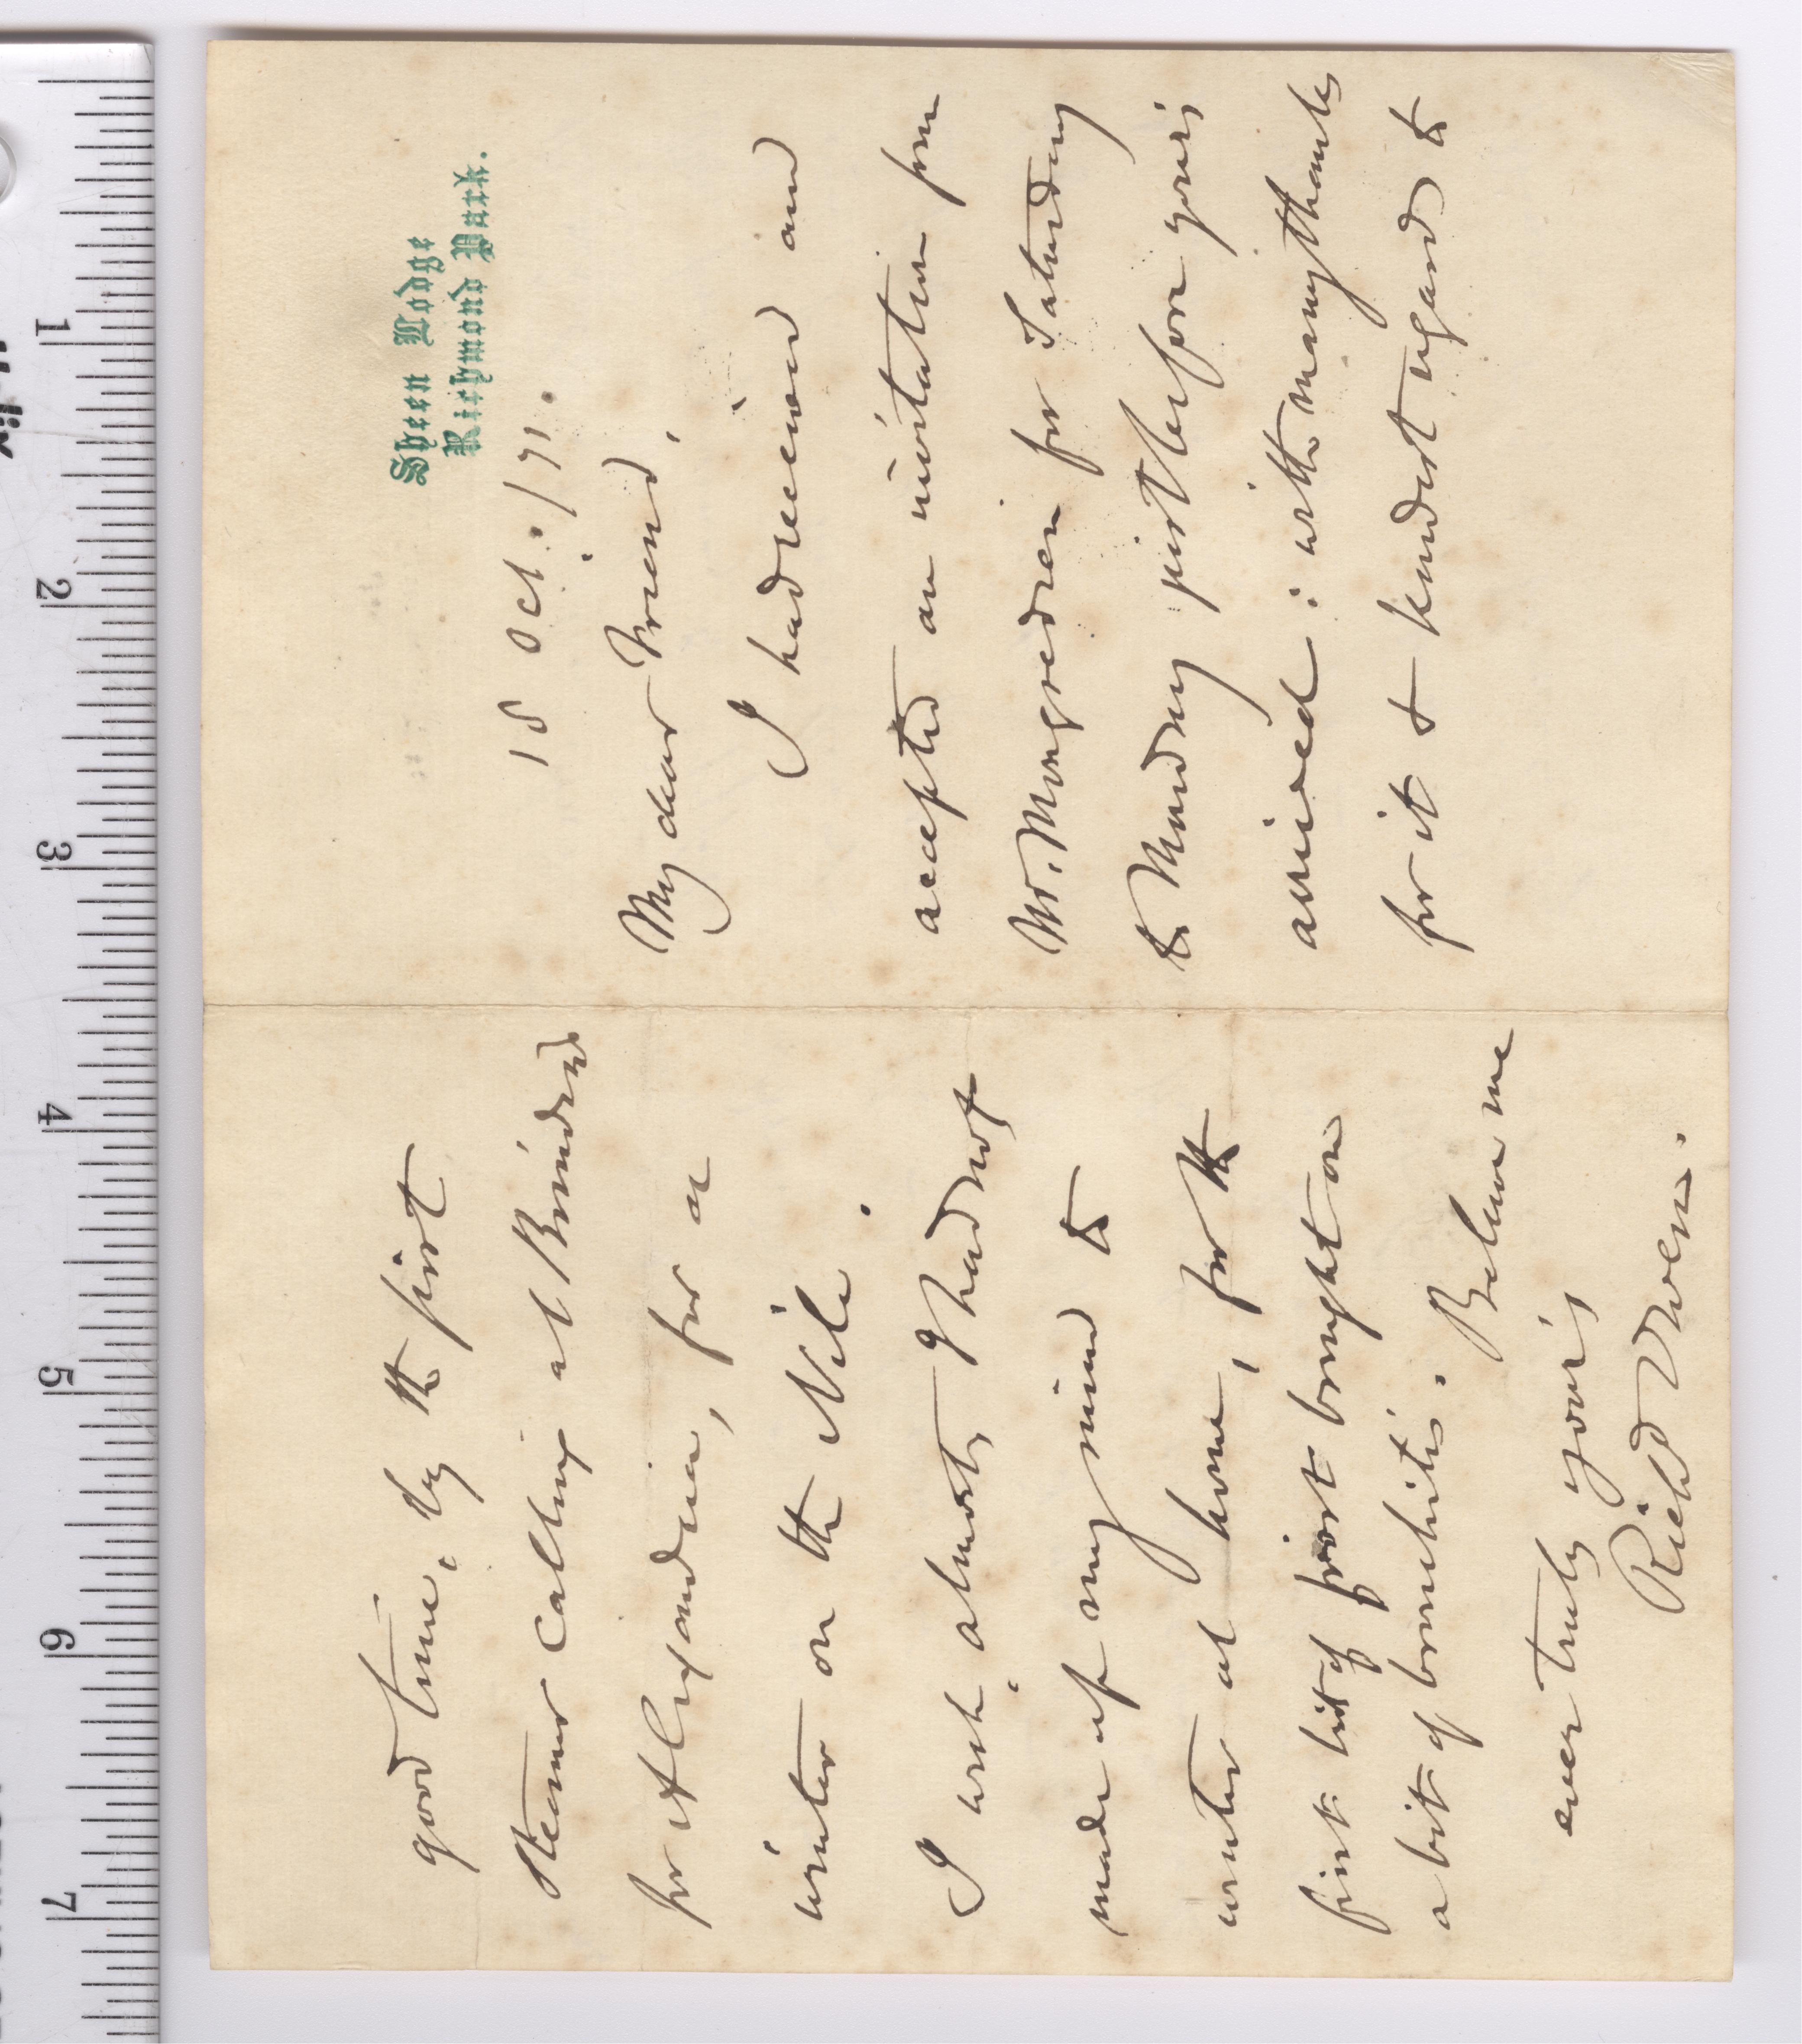 Sheen Lodge
Richmond Park.
18 Oct. /71.
My dear Friend,
I had received and
accepted an invitation from
Mr. Mongredien for Saturday
to Monday just before yours
arrived: with many thanks
for it & kindest regards to
good time, by the first
Steamer calling at Brindisi
for Alexandria, for a
winter on the Nile.
I wish, almost, I had not
made up my mind to
winter at home, for the
first bit of frost brought on
a bit of bronchitis. Believe me
ever truly yours
Richd Owen.
1
2
3
4
5
6
7